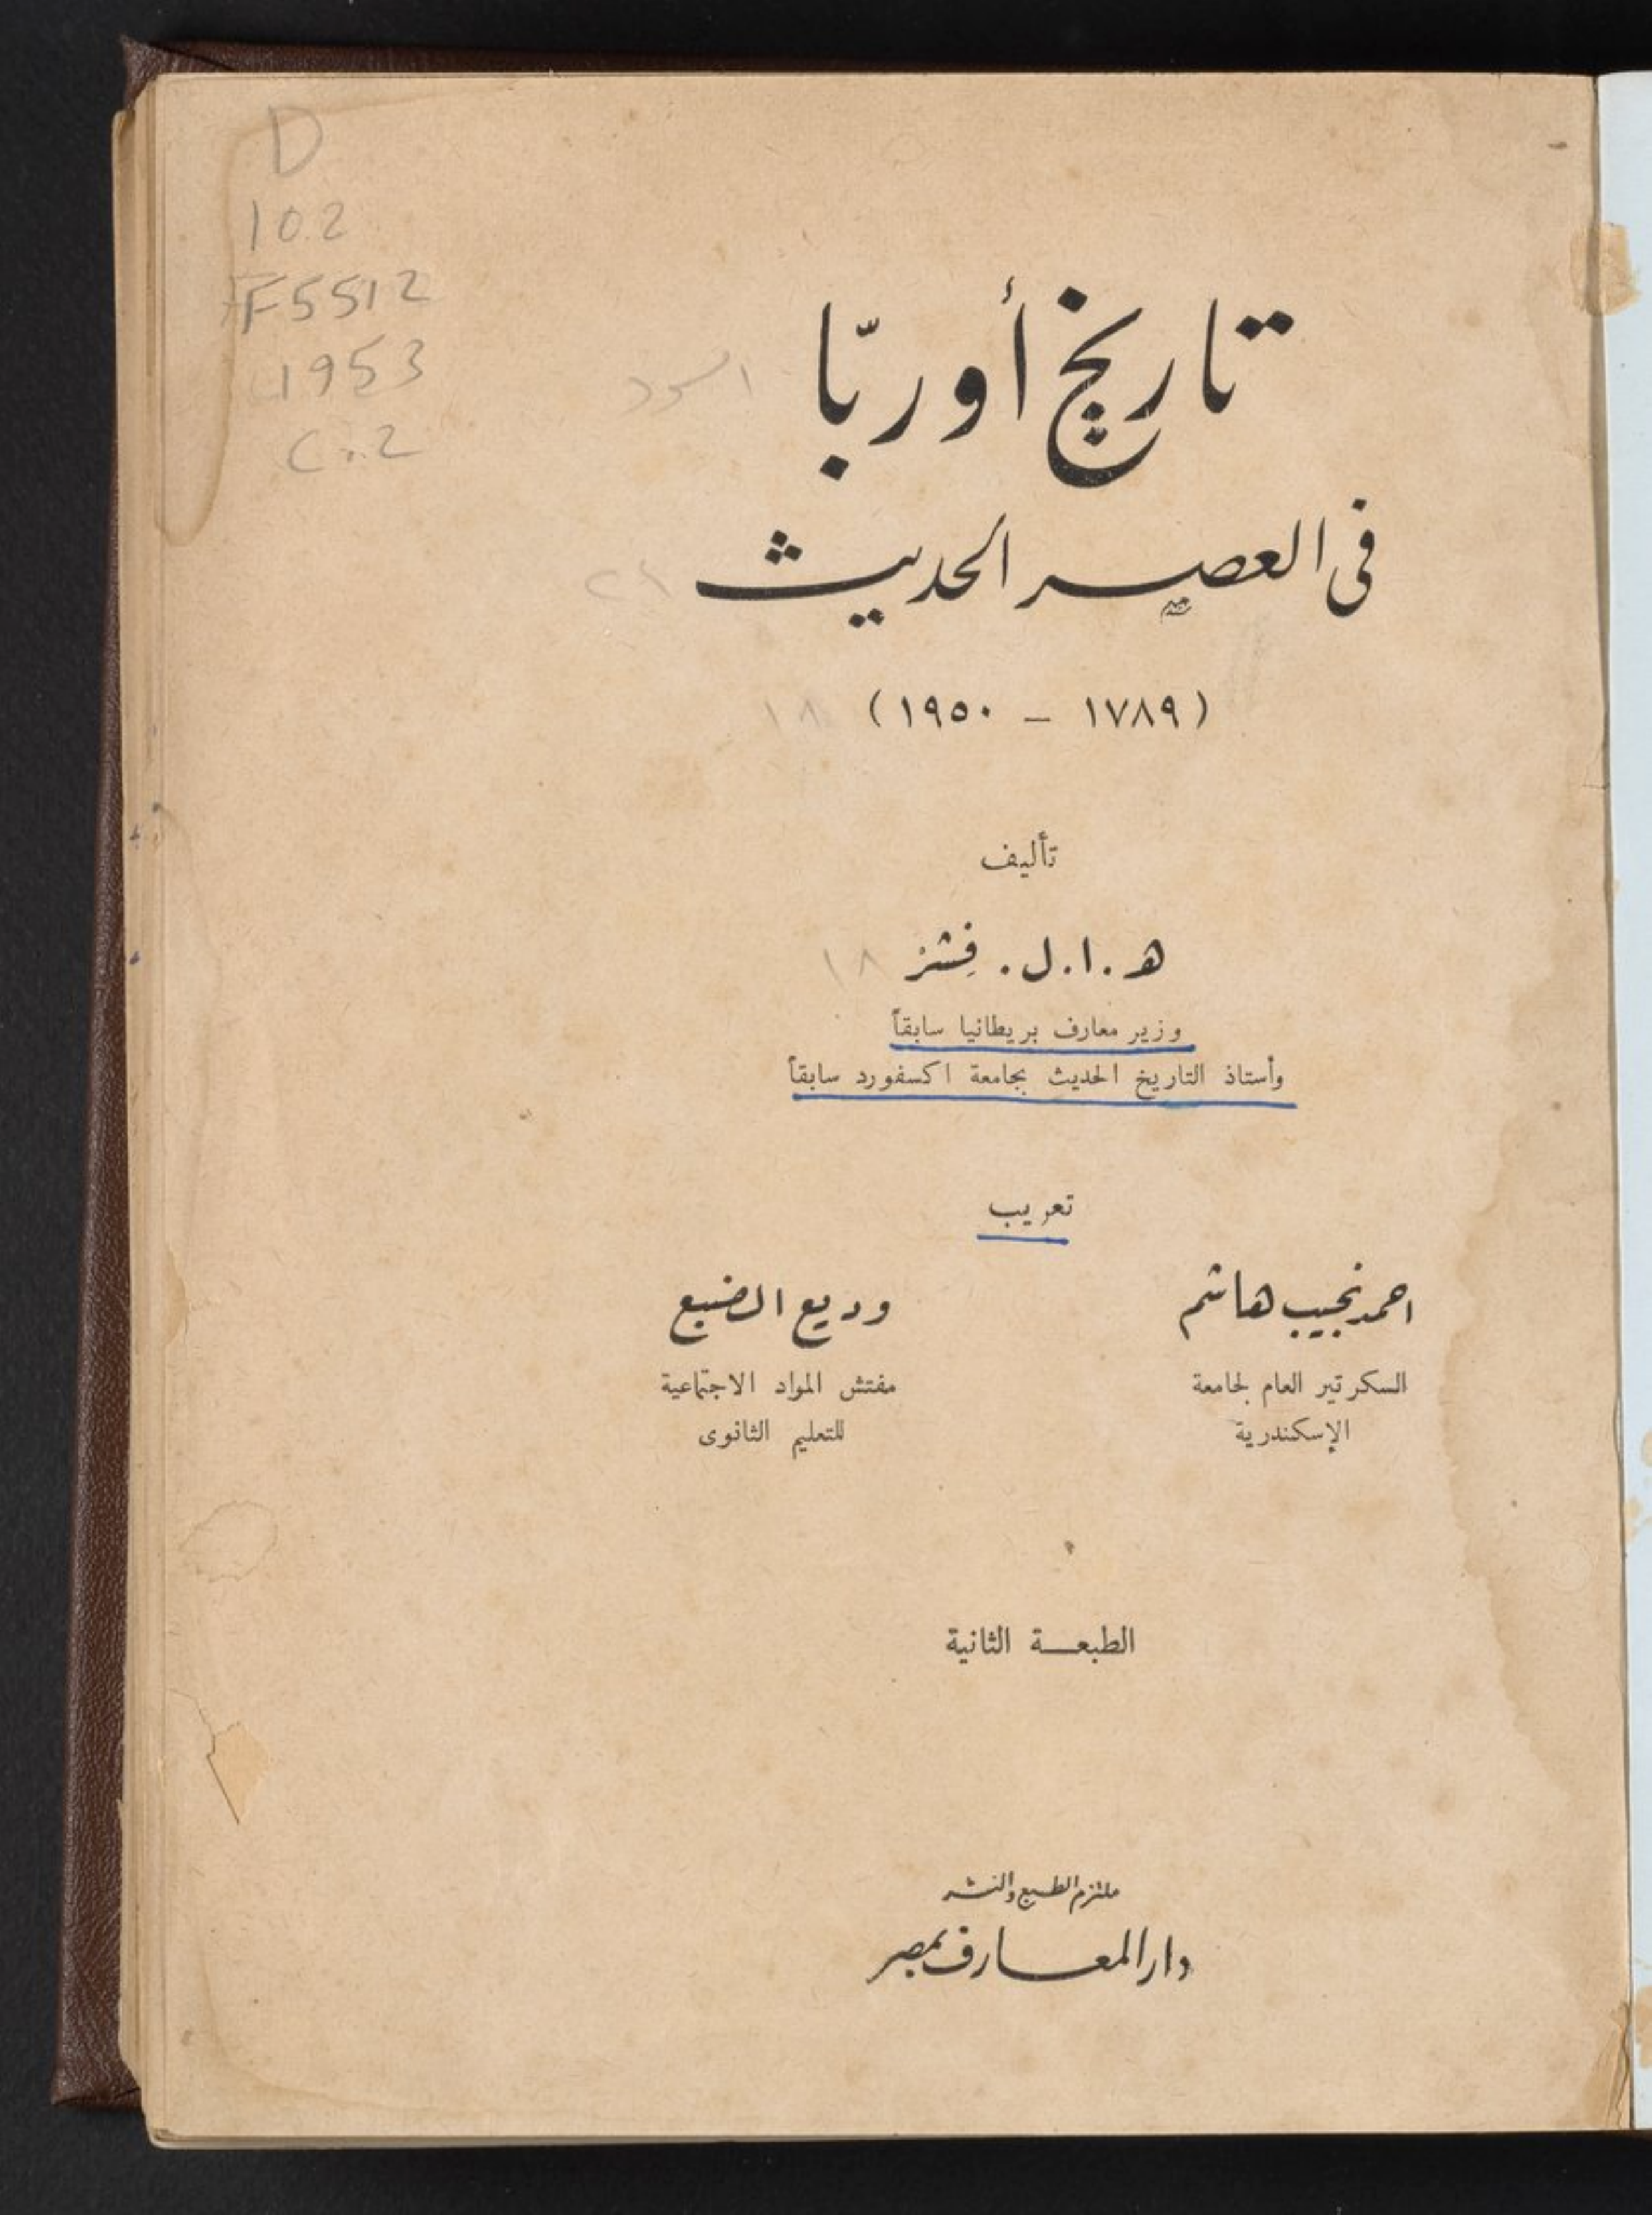 D
102
F5512
1953
C.2
تاريخ أوربّا
فى العصر الحديث
(١٧٨٩ – ١٩٥٠)
تأليف
ه . ا . ل . فِشَرْ
وزير معارف بريطانيا سابقاً
وأستاذ التاريخ الحديث بجامعة اكسفورد سابقاً
تعريب
احمد نجيب هاشم
السكرتير العام لجامعة
الإسكندرية
وديع الضبع
مفتش المواد الاجتماعية
للتعليم الثانوى
الطبعة الثانية
ملتزم الطبع والنشر
دار المعارف بمصر